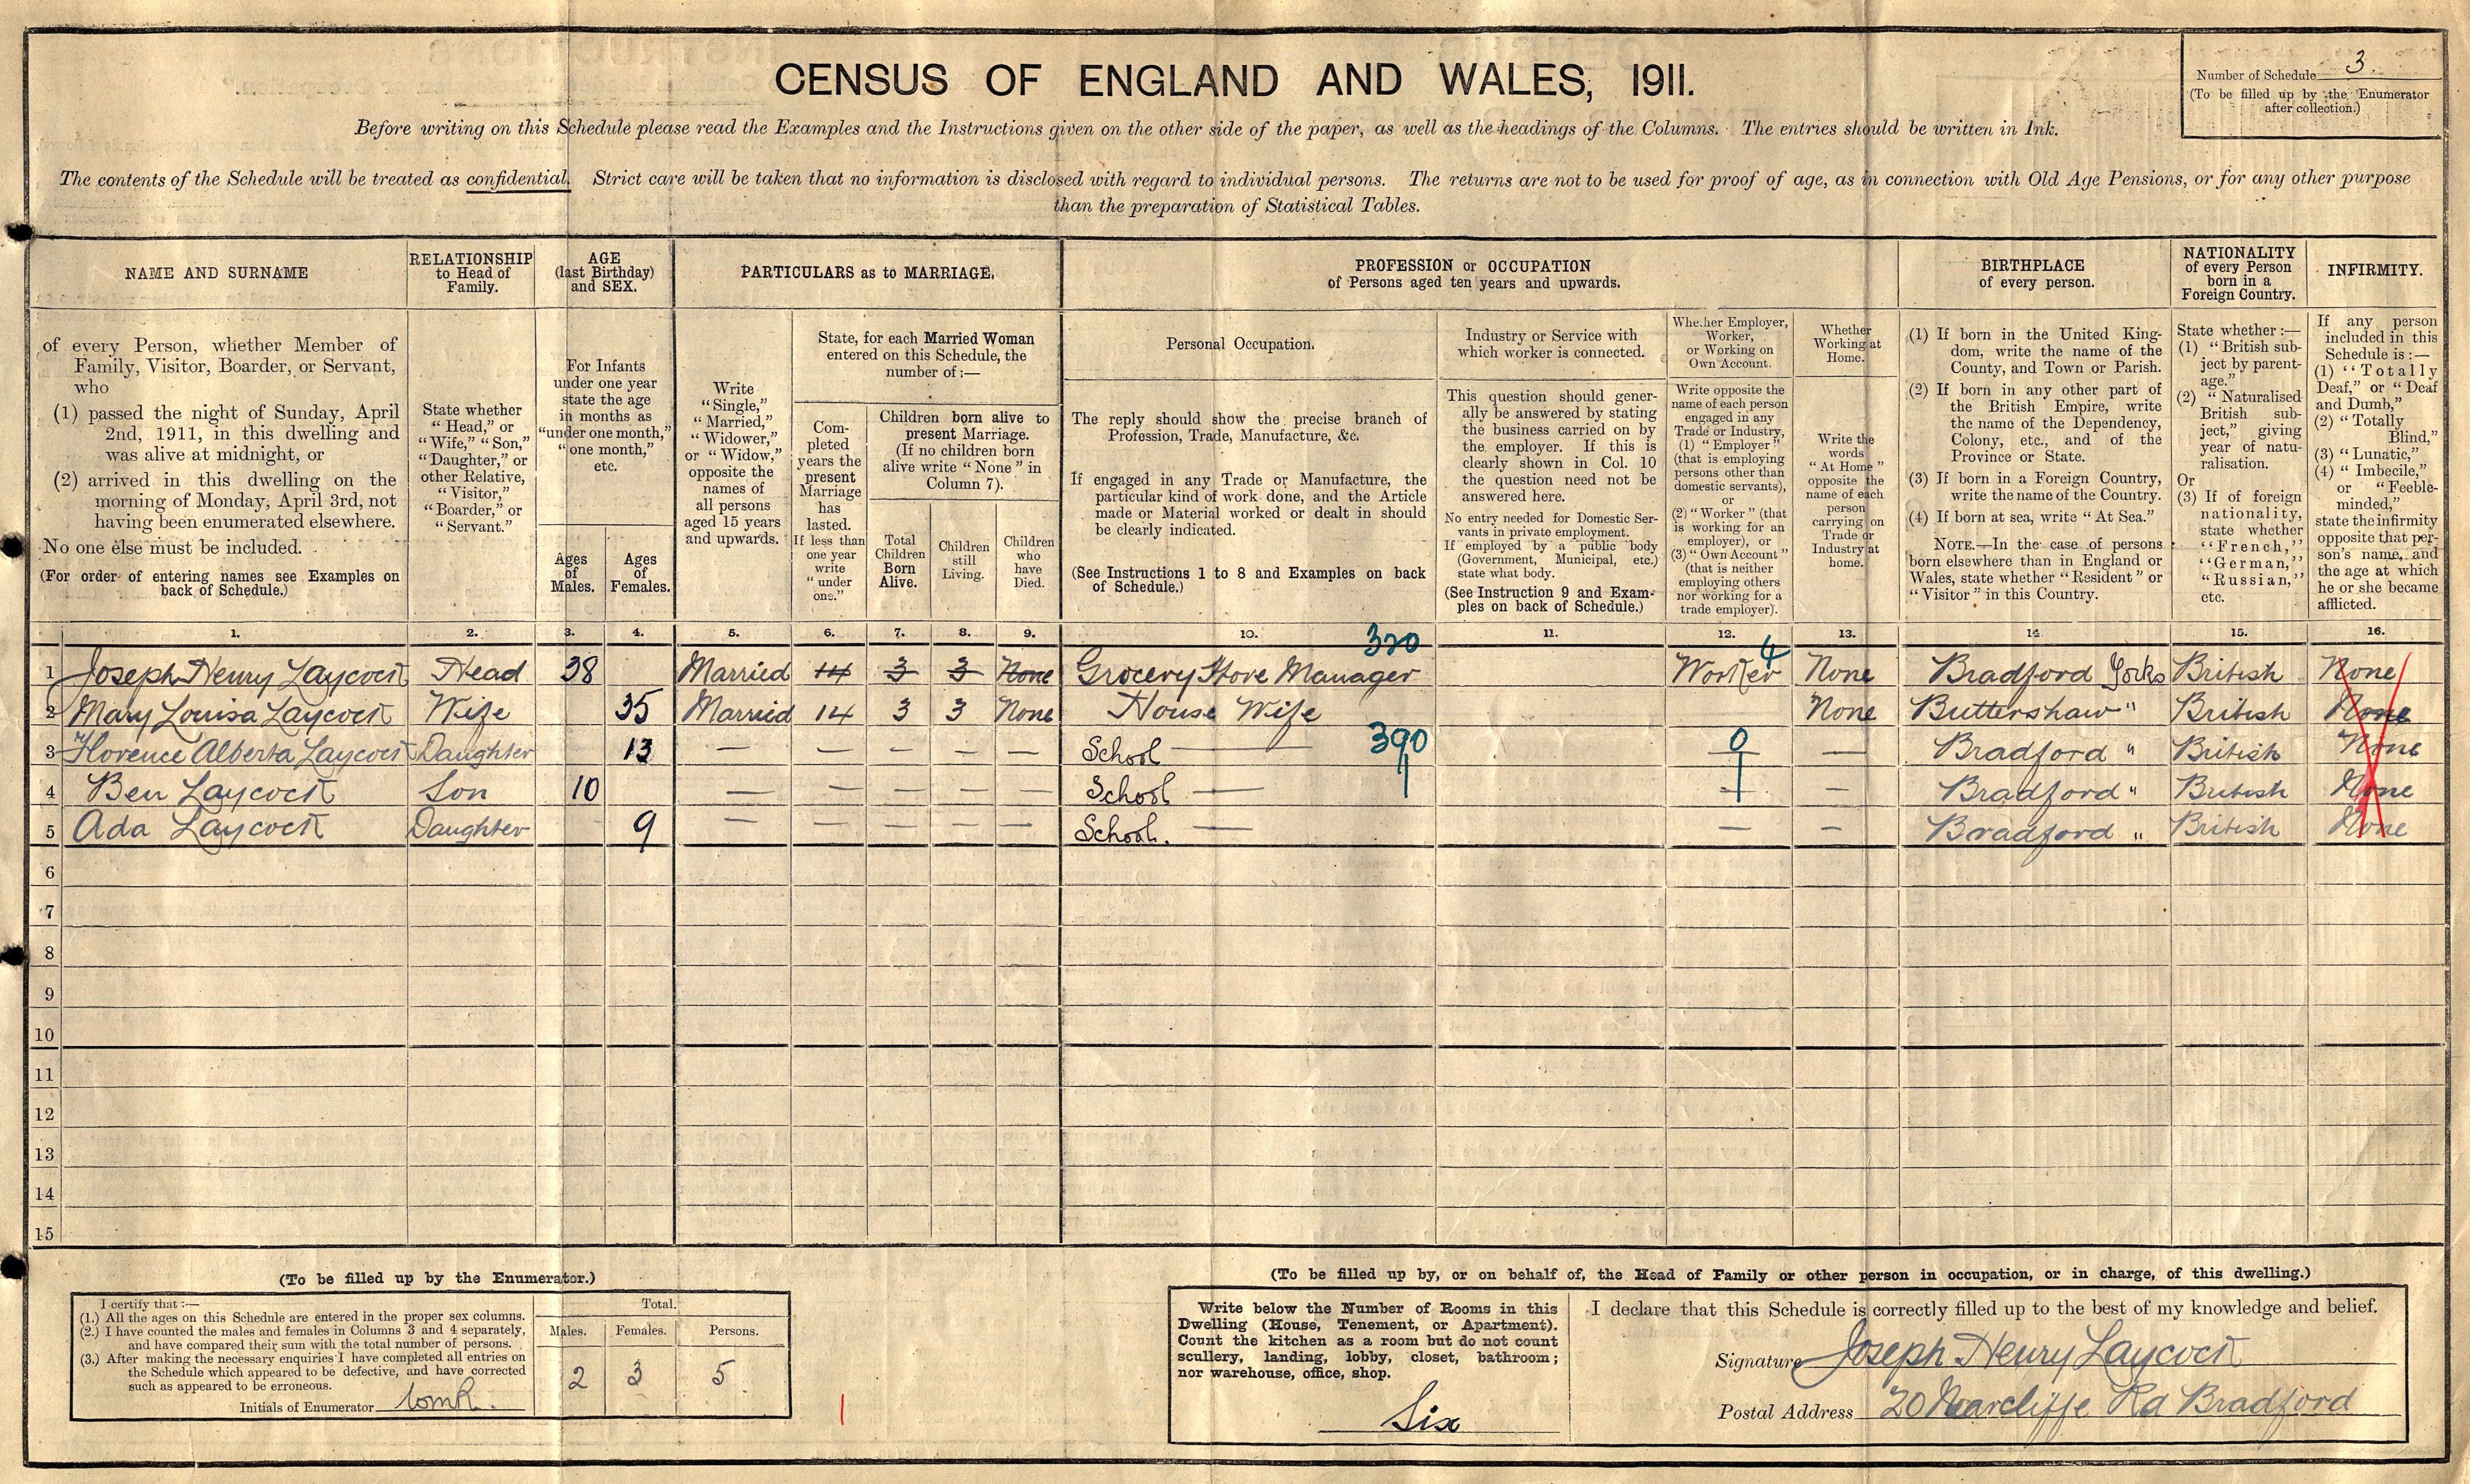 CENSUS OF ENGLAND AND WALES, 1911.
Number of Schedule 3.
(To be filled up by the Enumerator
after collection.)
Before writing on this Schedule please read the Examples and the Instructions given on the other side of the paper, as well as the headings of the Columns. The entries should be written in Ink.
The contents of the Schedule will be treated as confidential. Strict care will be taken that no information is disclosed with regard to individual persons. The returns are not to be used for proof of age, as in connection with Old Age Pensions, or for any other purpose
than the preparation of Statistical Tables.
NAME AND SURNAME
of every Person, whether Member of
Family, Visitor, Boarder, or Servant,
who
(1) passed the night of Sunday, April
2nd, 1911, in this dwelling and
was alive at midnight, or
(2) arrived in this dwelling on the
morning of Monday, April 3rd, not
having been enumerated elsewhere.
No one else must be included.
(For order of entering names see Examples on
back of Schedule.)
RELATIONSHIP
to Head of
Family.
State whether
"Head," or
"Wife," "Son,"
"Daughter," or
other Relative,
"Visitor,"
"Boarder," or
"Servant."
AGE
(last Birthday)
and SEX.
For Infants
under one year
state the age
in months as
"under one month,"
"one month,"
etc.
Ages
of
Males.
Ages
of
Females.
PARTICULARS as to MARRIAGE.
Write
"Single,"
"Married,"
"Widower,"
or "Widow,"
opposite the
names of
all persons
aged 15 years
and upwards.
State, for each Married Woman
entered on this Schedule, the
number of :—
Com-
pleted
years the
present
Marriage
has
lasted.
If less than
one year
write
"under
one."
Children born alive to
present Marriage.
(If no children born
alive write "None" in
Column 7).
Total
Children
Born
Alive.
Children
still
Living.
Children
who
have
Died.
PROFESSION or OCCUPATION
of Persons aged ten years and upwards.
Personal Occupation.
The reply should show the precise branch of
Profession, Trade, Manufacture, &c.
If engaged in any Trade or Manufacture, the
particular kind of work done, and the Article
made or Material worked or dealt in should
be clearly indicated.
(See Instructions 1 to 8 and Examples on back
of Schedule.)
Industry or Service with
which worker is connected.
This question should gener-
ally be answered by stating
the business carried on by
the employer. If this is
clearly shown in Col. 10
the question need not be
answered here.
No entry needed for Domestic Ser-
vants in private employment.
If employed by a public body
(Government, Municipal, etc.)
state what body.
(See Instruction 9 and Exam-
ples on back of Schedule.)
Whether Employer,
Worker,
or Working on
Own Account.
Write opposite the
name of each person
engaged in any
Trade or Industry,
(1) "Employer"
(that is employing
persons other than
domestic servants),
or
(2) "Worker" (that
is working for an
employer), or
(3) "Own Account"
(that is neither
employing others
nor working for a
trade employer).
Whether
Working at
Home.
Write the
words
"At Home"
opposite the
name of each
person
carrying on
Trade or
Industry at
home.
BIRTHPLACE
of every person.
(1) If born in the United King-
dom, write the name of the
County, and Town or Parish.
(2) If born in any other part of
the British Empire, write
the name of the Dependency,
Colony, etc., and of the
Province or State.
(3) If born in a Foreign Country,
write the name of the Country.
(4) If born at sea, write "At Sea."
NOTE.—In the case of persons
born elsewhere than in England or
Wales, state whether "Resident" or
"Visitor" in this Country.
NATIONALITY
of every Person
born in a
Foreign Country.
State whether :—
(1) "British sub-
ject by parent-
age."
(2) "Naturalised
British sub-
ject," giving
year of natu-
ralisation.
Or
(3) If of foreign
nationality,
state whether
"French,"
"German,"
"Russian,"
etc.
INFIRMITY.
If any person
included in this
Schedule is :—
(1) "Totally
Deaf," or "Deaf
and Dumb,"
(2) "Totally
Blind,"
(3) "Lunatic,"
(4) "Imbecile,"
or "Feeble-
minded,"
state the infirmity
opposite that per-
son's name, and
the age at which
he or she became
afflicted.
1. 2. 3. 4. 5. 6. 7. 8. 9. 10. 320 11. 12. 13. 14. 15. 16.
1 Joseph Henry Laycock Head 38 Married 14 3 3 None Grocery Store Manager Worker 4 None Bradford Yorks British None
2 Mary Louisa Laycock Wife 35 Married 14 3 3 None House Wife None Buttershaw " British None
3 Florence Alberta Laycock Daughter 13 — — — — — School — 390 0 — Bradford " British None
4 Ben Laycock Son 10 — — — — — School — — — Bradford " British None
5 Ada Laycock Daughter 9 — — — — — School. — — — Bradford " British None
6
7
8
9
10
11
12
13
14
15
(To be filled up by the Enumerator.)
I certify that :—
(1.) All the ages on this Schedule are entered in the proper sex columns.
(2.) I have counted the males and females in Columns 3 and 4 separately,
and have compared their sum with the total number of persons.
(3.) After making the necessary enquiries I have completed all entries on
the Schedule which appeared to be defective, and have corrected
such as appeared to be erroneous.
Initials of Enumerator
Total.
Males. Females. Persons.
2 3 5
(To be filled up by, or on behalf of, the Head of Family or other person in occupation, or in charge, of this dwelling.)
Write below the Number of Rooms in this
Dwelling (House, Tenement, or Apartment).
Count the kitchen as a room but do not count
scullery, landing, lobby, closet, bathroom;
nor warehouse, office, shop.
Six
I declare that this Schedule is correctly filled up to the best of my knowledge and belief.
Signature Joseph Henry Laycock
Postal Address 20 Nearcliffe Rd Bradford